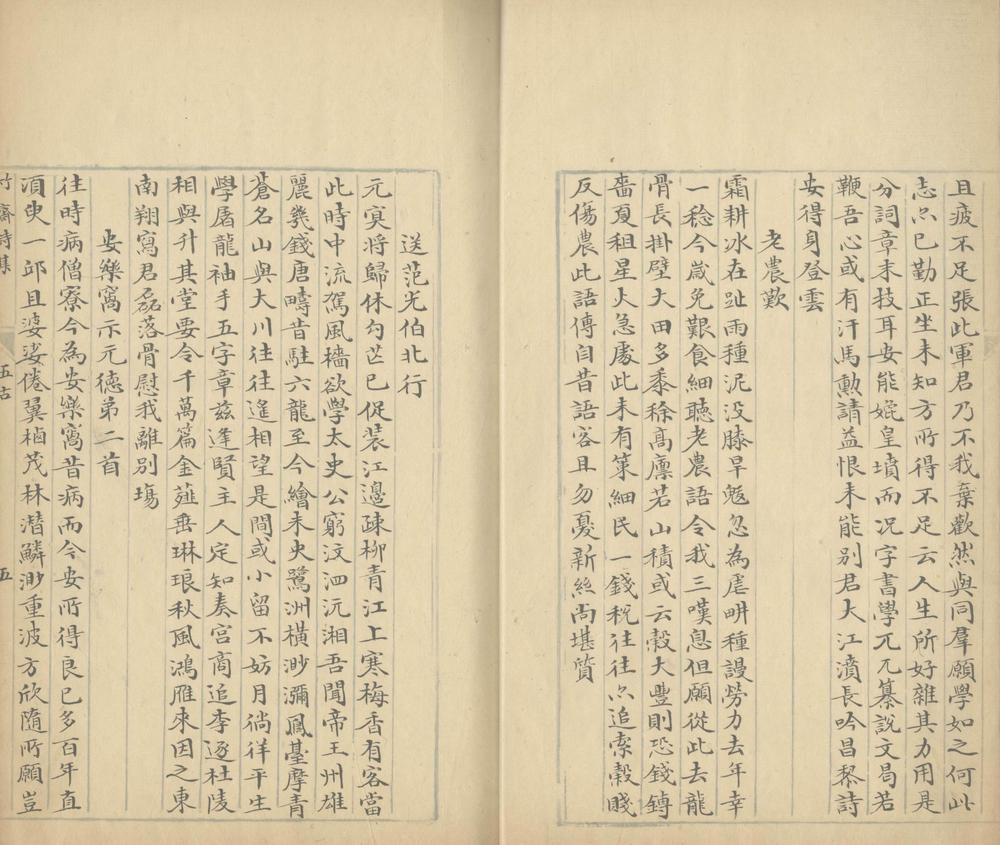 且疲不足張此軍君乃不我棄歡然與同羣願學如之何此
志尒已勤正坐未知方所得不足云人生所好雜其力用是
分詞章末技耳安能媲皇墳而况字書學兀兀纂說文曷若
鞭吾心或有汗馬勳請益恨未能別君大江濆長吟昌黎詩
安得身登雲
老農歎
霜耕冰在趾雨種泥没膝旱魃忽為虐畊種謾勞力去年幸
一稔今嵗免艱食細聽老農語令我三嘆息但願從此去龍
骨長掛壁大田多黍稌高廪若山積或云榖大豐則恐錢鏄
嗇夏租星火急處此未有策細民一錢税往往尒追索榖賤
反傷農此語傳自昔語客且勿憂新絲尚堪質
送范光伯北行
元冥将歸休勾芒已促装江邊疎柳青江上寒梅香有客當
此時中流駕風檣欲學太史公窮汶泗沅湘吾聞帝王州雄
麗幾錢唐疇昔駐六龍至今繪未央鷺洲横渺瀰鳳臺摩青
蒼名山與大川往往遙相望是間或小留不妨月徜徉平生
學屠龍袖手五字章兹逢賢主人定知奏宫商追李逐杜陵
相與升其堂要令千萬篇金薤垂琳琅秋風鴻雁來因之東
南翔寫君磊落骨慰我離别塲
安樂窩示元徳第二首
往時病僧寮今為安樂窩昔病而今安所得良已多百年直
湏臾一邱且婆娑倦翼栖茂林潜鱗渺重波方欣隨所願豈
竹齋詩集 五古 五